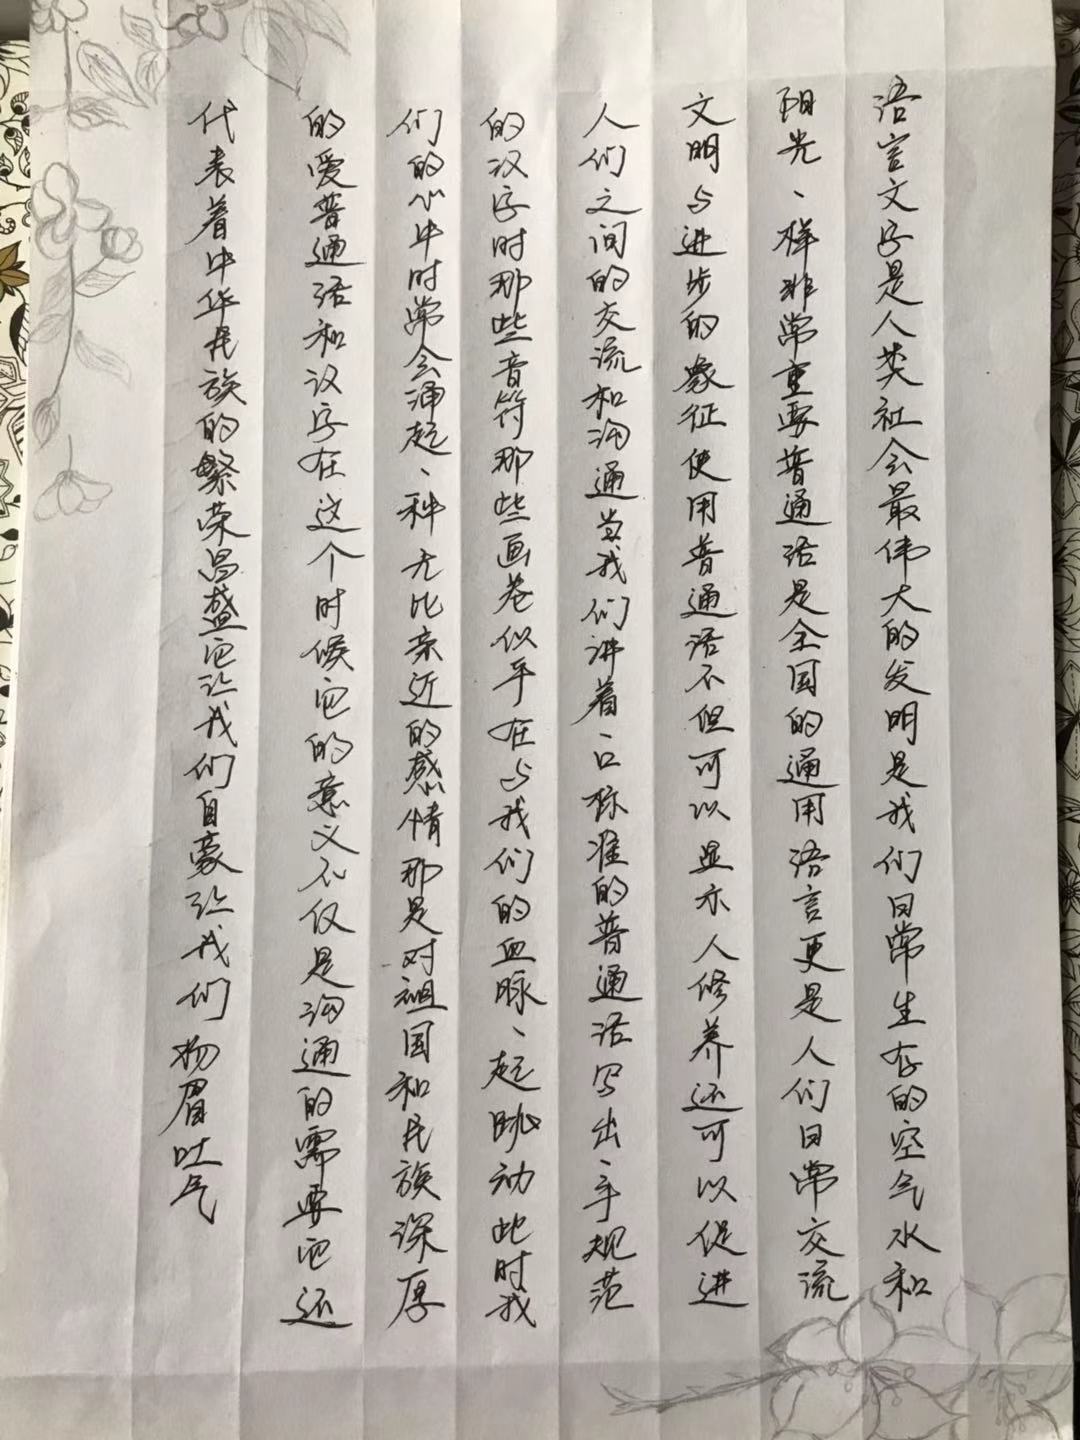 语言文字是人类社会最伟大的发明是我们日常生存的空气水和
阳光一样非常重要普通话是全国的通用语言更是人们日常交流
文明与进步的象征使用普通话不但可以显示人修养还可以促进
人们之间的交流和沟通当我们讲着一口标准的普通话写出一手规范
的汉字时那些音符那些画卷似乎在与我们的血脉一起跳动此时我
们的心中时常会涌起一种无比亲近的感情那是对祖国和民族深厚
的爱普通话和汉字在这个时候它的意义不仅是沟通的需要它还
代表着中华民族的繁荣昌盛它让我们自豪让我们扬眉吐气